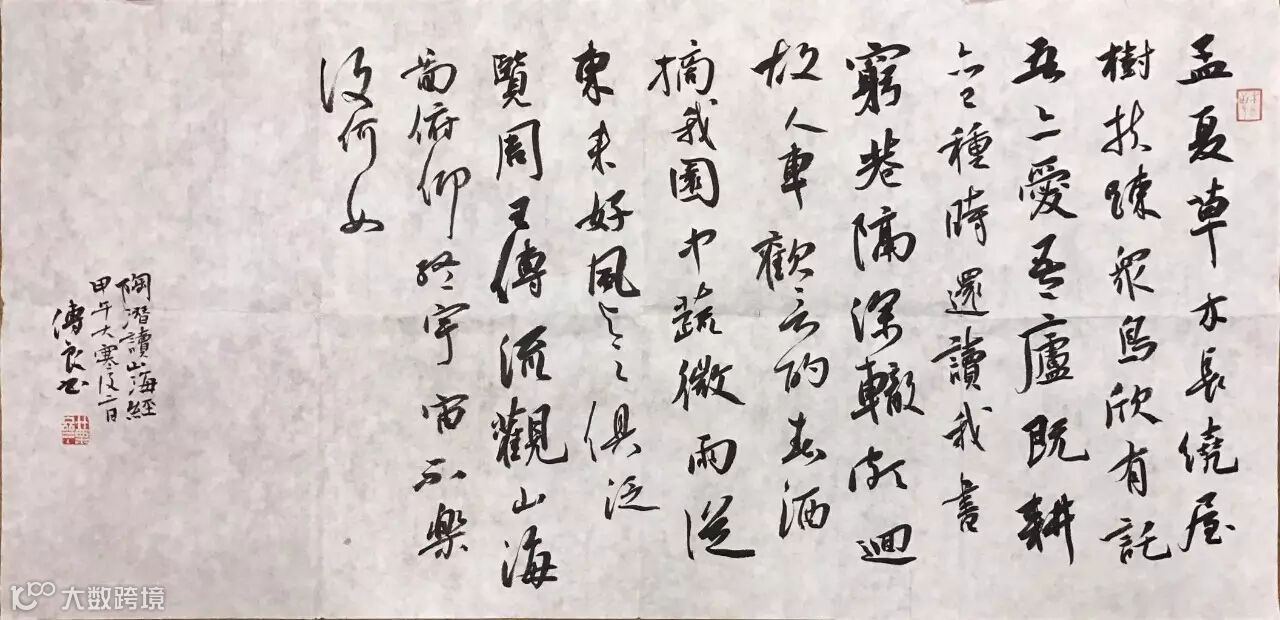 孟夏草木長繞屋
樹扶踈眾鳥欣有託
吾亦愛吾廬既耕
亦已種時還讀我書
窮巷隔深轍頗迴
故人車歡言酌春酒
摘我園中蔬微雨從
東来好風与之俱泛
覽周王傳流觀山海
圖俯仰終宇宙不樂
復何如
陶潛讀山海經
甲午大寒後日
傅良书
大数跨境